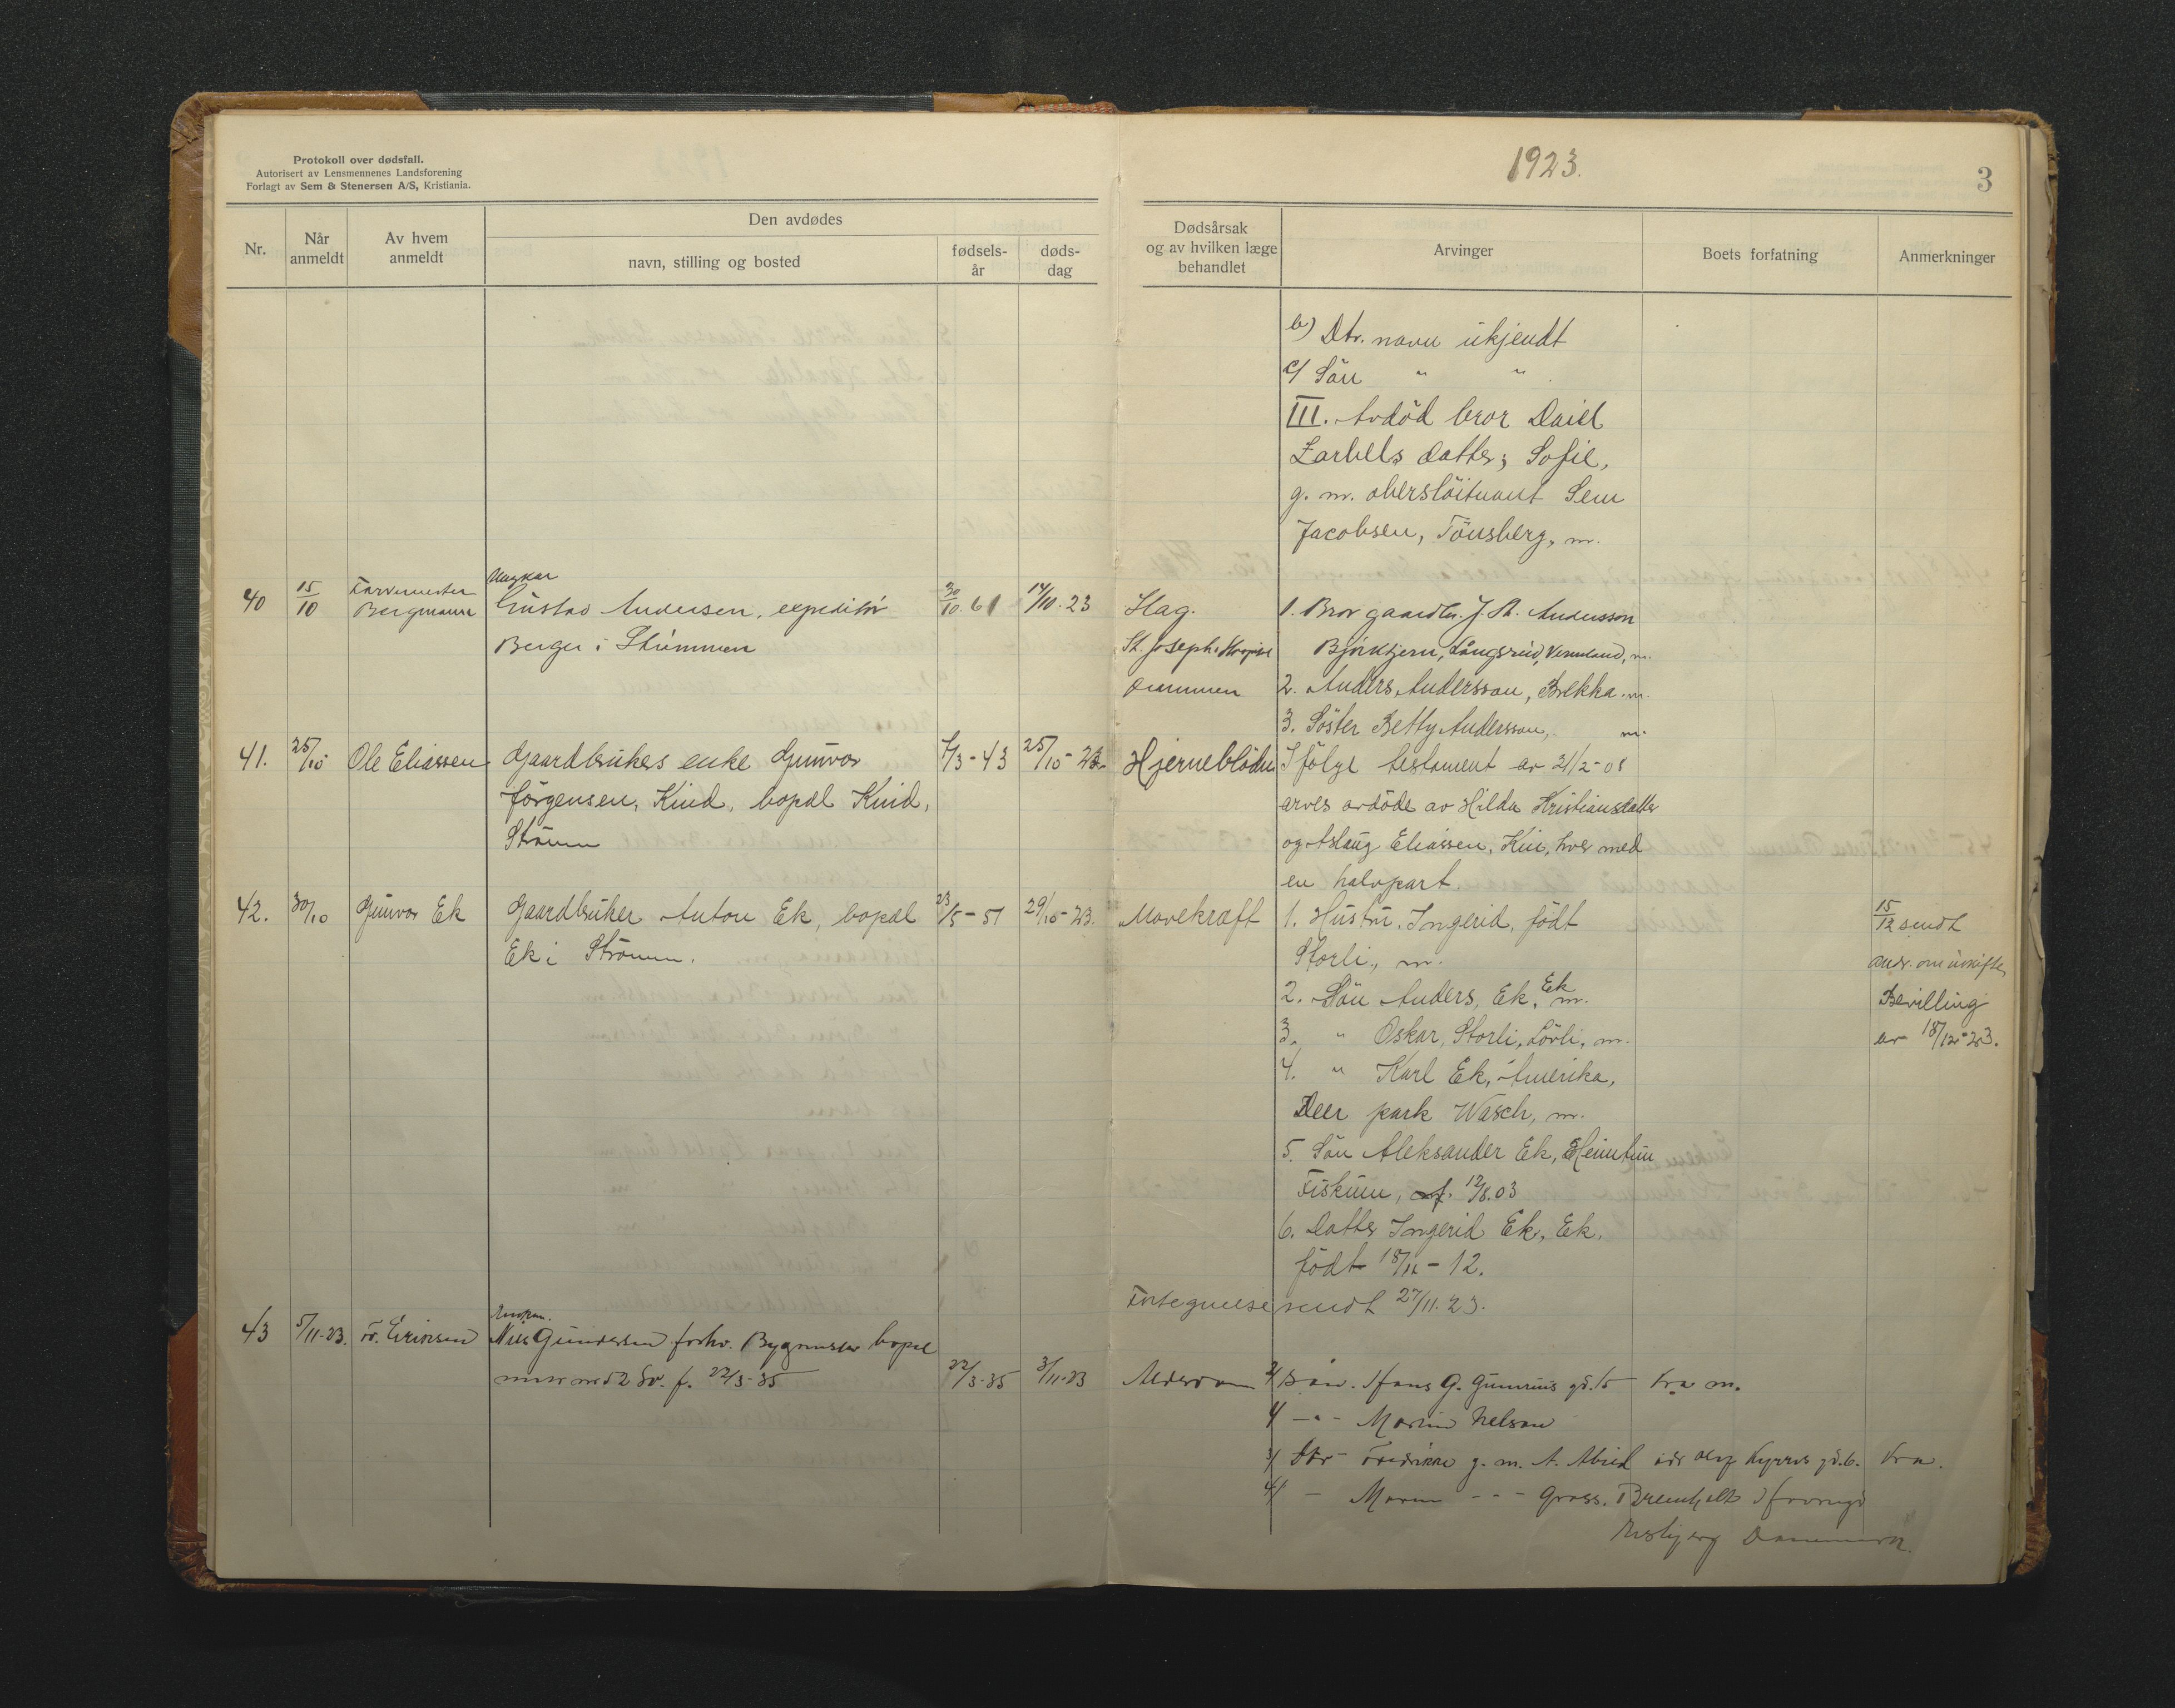 Protokoll over dødsfall.
Autorisert av Lensmennenes Landsforening
Forlagt av Sem & Stenersen A/S, Kristiania.
1923.
3
Nr.
Når anmeldt
Av hvem anmeldt
Den avdødes
navn, stilling og bosted
fødsels-
år
døds-
dag
Dødsårsak
og av hvilken læge
behandlet
Arvinger
Boets forfatning
Anmerkninger
b) Dtr. navn ukjendt
c) Sön " "
III. Avdöd bror Daiel
Zarbells datter; Sofie,
g. m. oberslöitnant Sem
Jacobsen, Tönsberg, m.
40
15/10
Farvemester
Bergmann
Ungkar
Gustav Andersen, expeditör
Berger i Strömmen
30/10 61
14/10. 23
Slag.
St. Josephs Hospital
Drammen
1. Bror gaardbr. J. A. Andersson
Björktjern, Långsrud, Vermland, m.
2. Anders Andersson, Brekka. m.
3. Söster Betty Andersson, m.
41.
25/10
Ole Eliassen
Gaardbrukers enke Gunvor
Jörgensen, Kind, bopæl Knid,
Strömm
7/3-43
25/10-23
Hjerneblödn
I fölge testament av 21/2-08
arves avdöde av Hilda Kristiansdatter
og Aslaug Eliassen, Kin, hver med
en halvpart.
42.
30/10
Gunvor Ek
Gaardbruker Anton Ek, bopæl
Ek i Strömm.
23/5-51
29/10-23.
Mavekræft
1. Hustru Ingerid, födt
Storli, m.
2. Sön Anders, Ek, Ek m.
3. " Oskar, Storli, Lövli, m.
4. " Karl Ek, Amerika,
Deer park Wasch, m.
5. Sön Aleksander Ek, Heimtun
Fiskum, f. 12/8.03
6. Datter Ingerid Ek, Ek,
födt 18/11-12.
15/12 sendt
andr. om uskifte
Bevilling
av 18/12-23.
Fortegnelse sendt 27/11. 23.
43
5/11-23.
Fr. Eriksen
Enkem.
Nils Gundersen forhv. Bygmester bopæl
f. 22/3-35
22/3-35
3/11-23
Alderdom
1/ Sön. Hans G. Kra m.
2/ -"- Martin Nelson
3/ Dtr - Fredrikke g. m. A. Kyrres gd. 6. Kra.
4/ - - " - Gross.
Esbjerg Danmark.